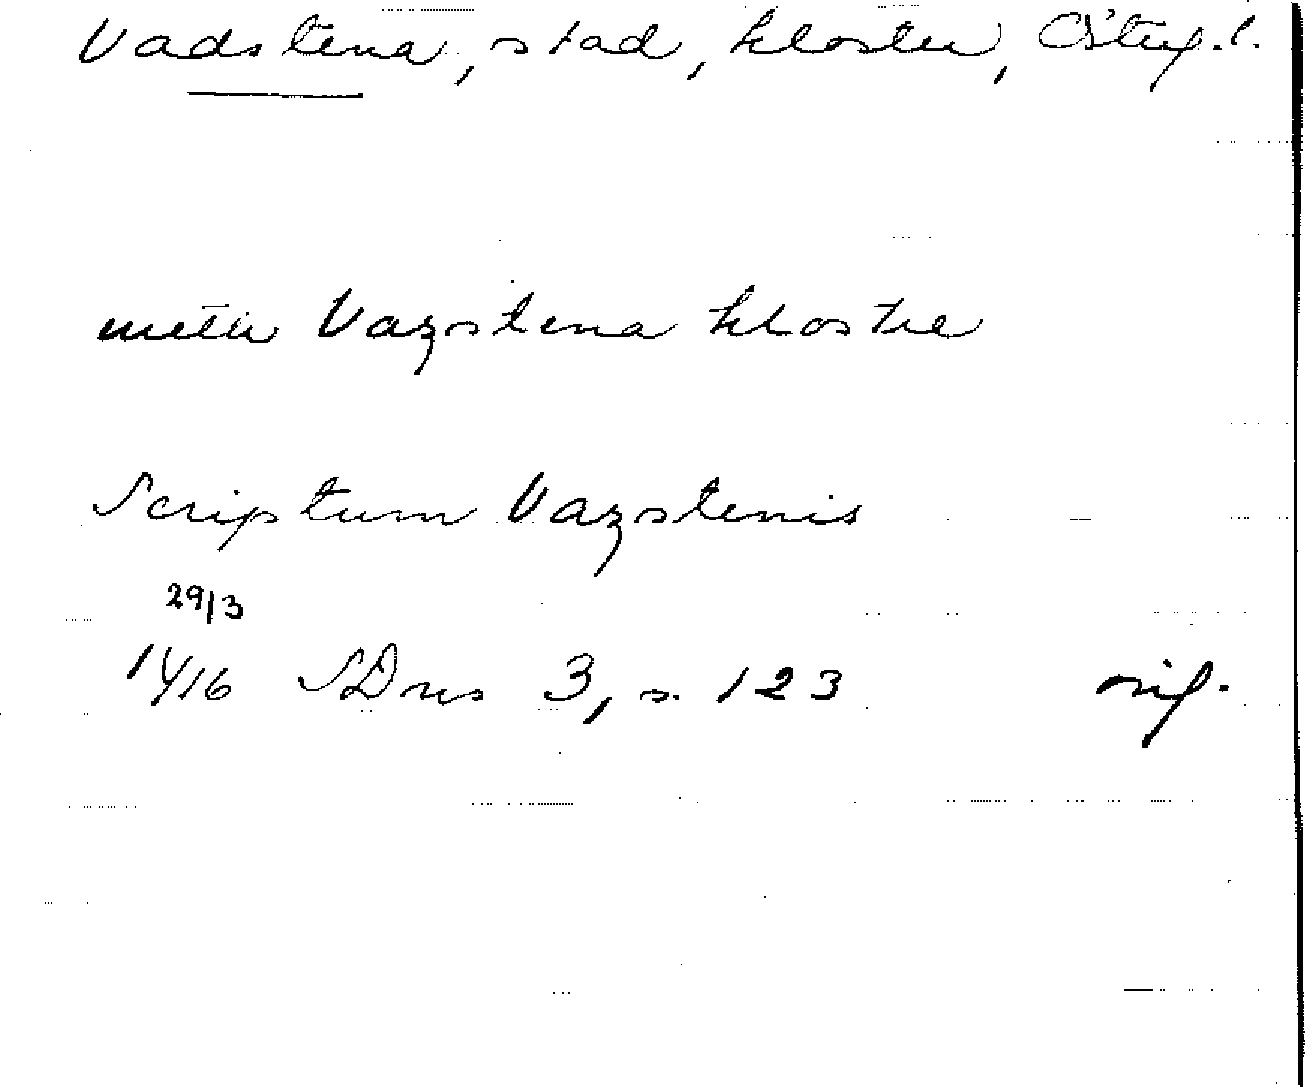 Vadstena, stad, kloster, Östg.l.
meth Vazstena klostre
Scriptum Vazstenis
29/3
1416 SDns 3, s. 123 orig.